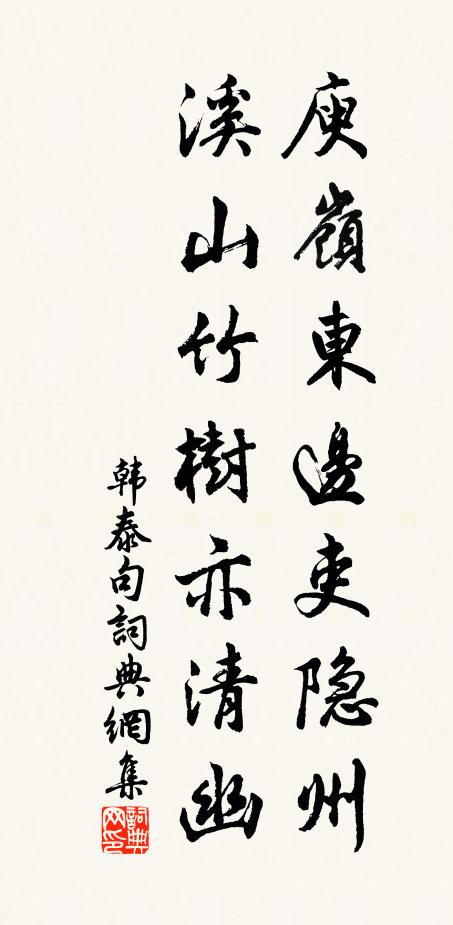 庾嶺東邊吏隐州
溪山竹樹亦清幽
韩泰句詞典網集
詞典
网印